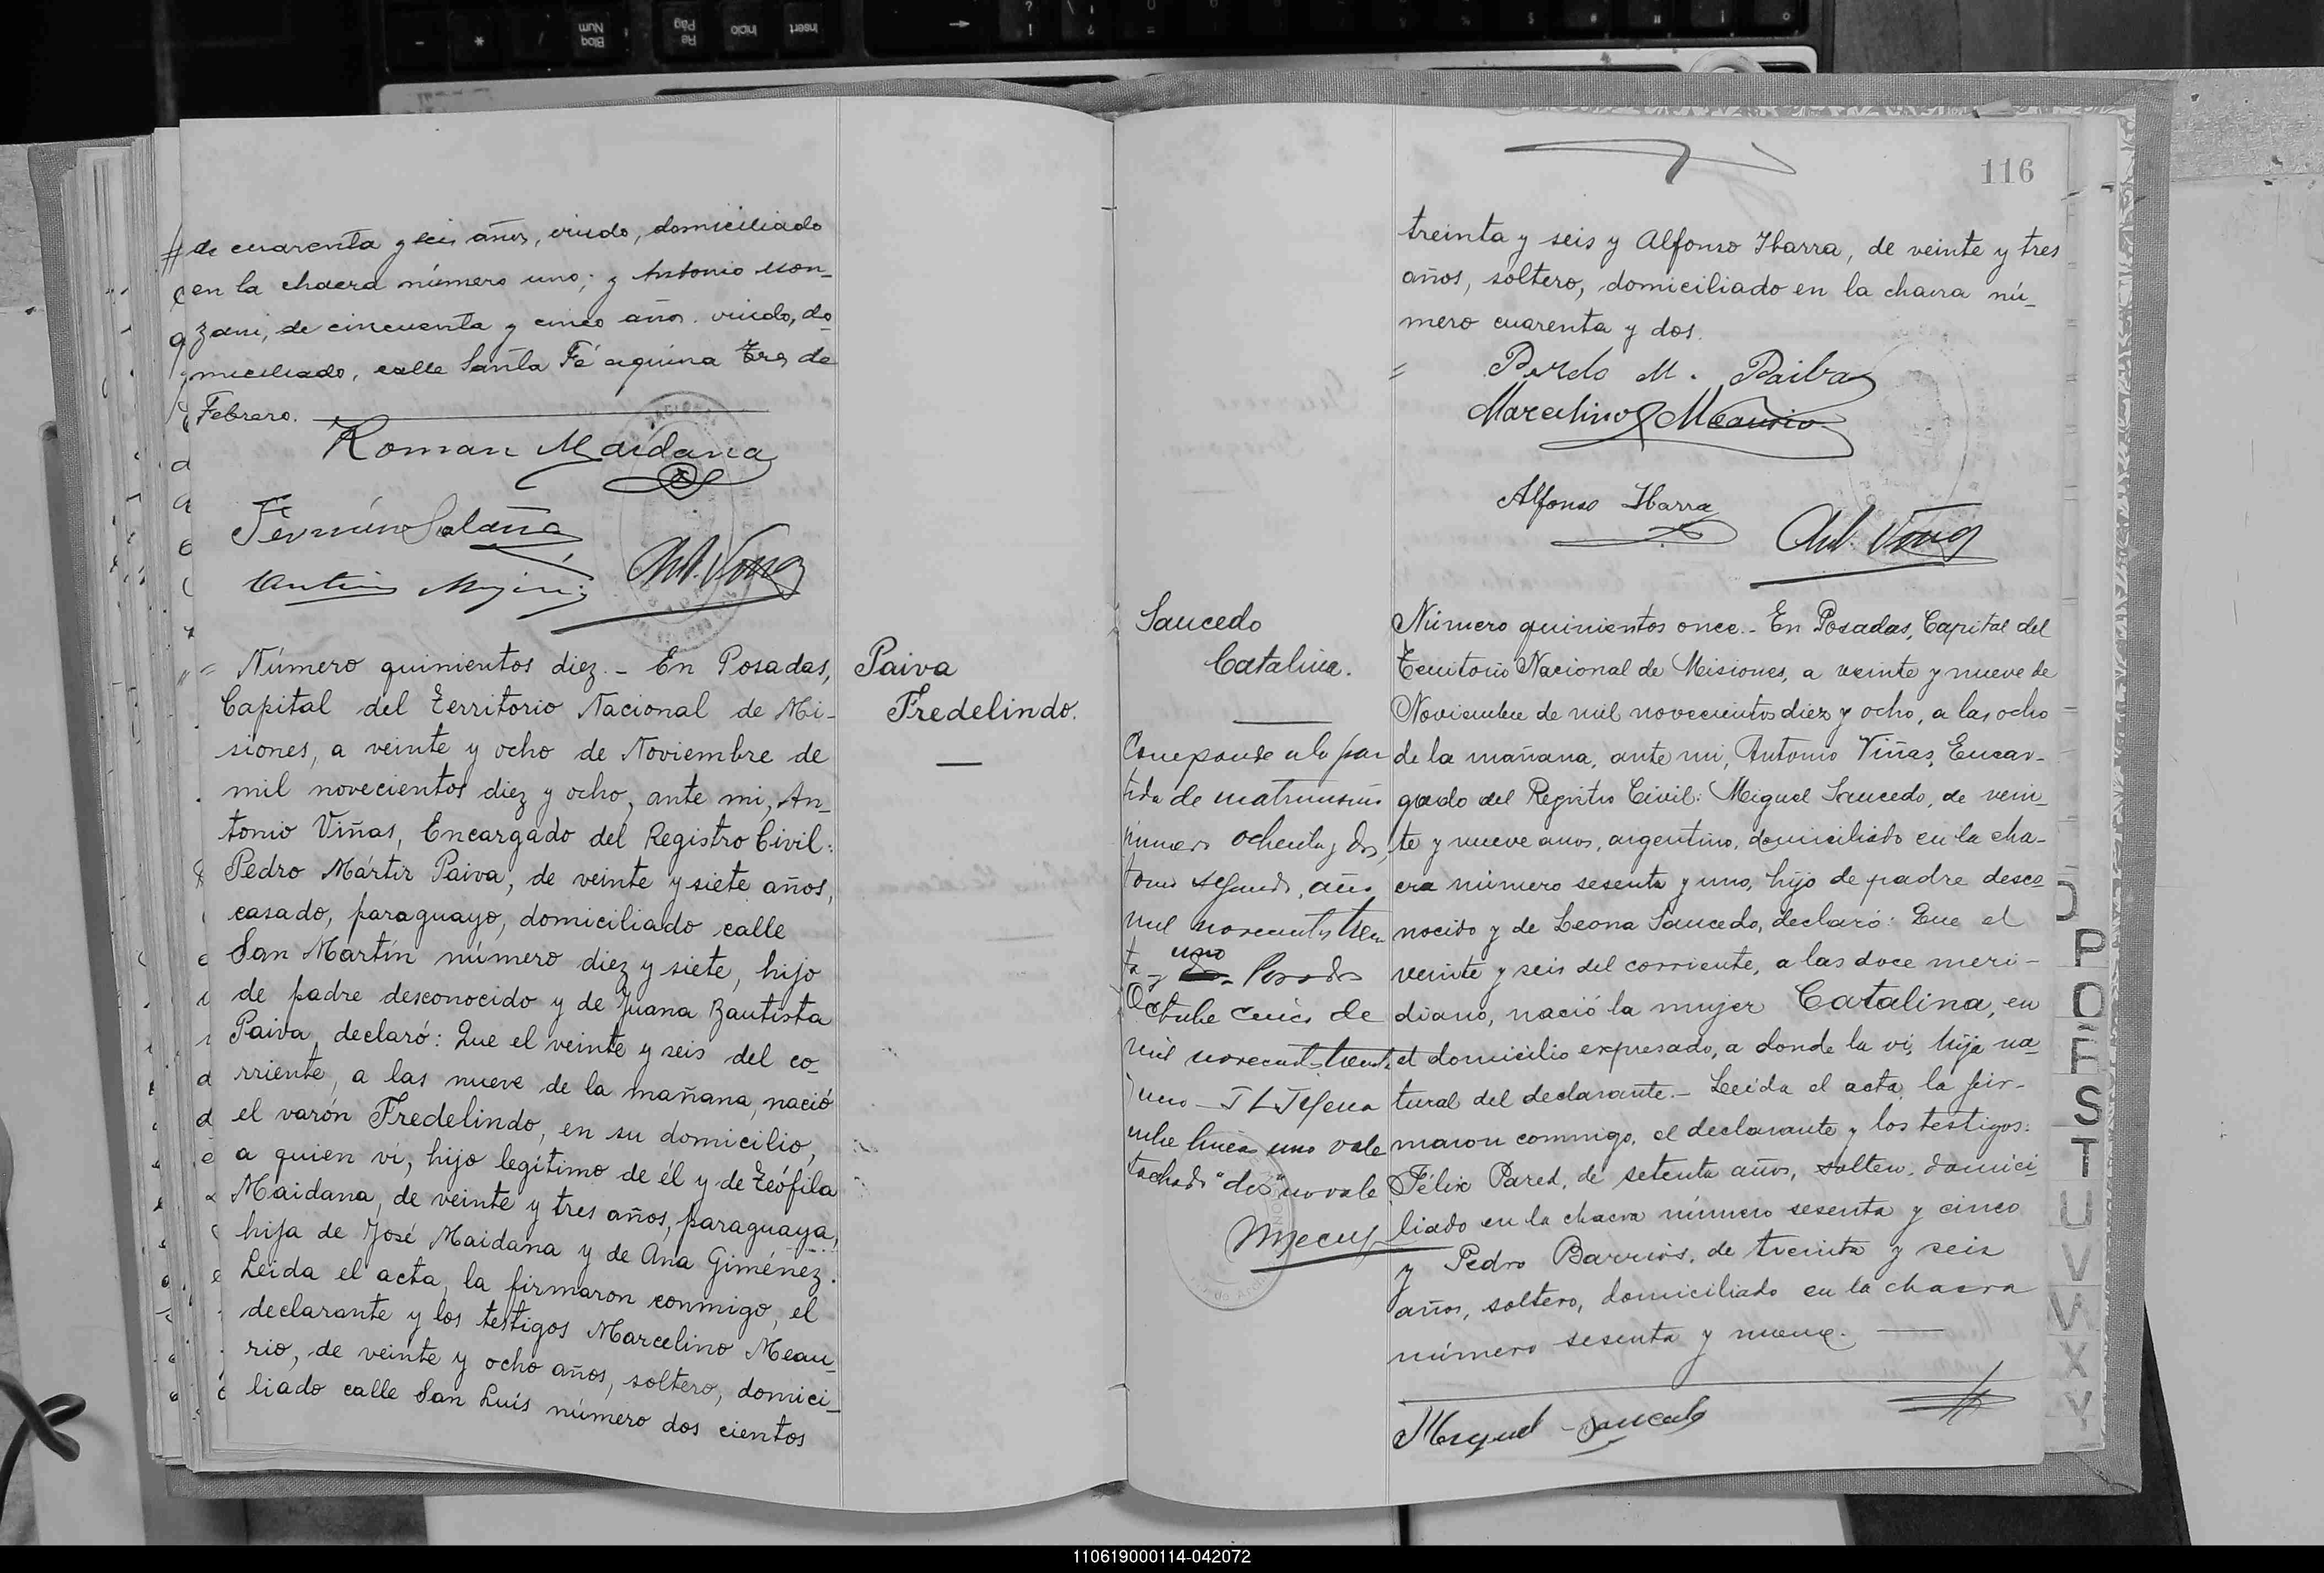 de cuarenta y seis años, viudo, domiciliado
en la chacra número uno; y Antonio Mon-
zani, de cincuenta y cinco años, viudo, do-
miciliado, calle Santa Fé esquina Tres de
Febrero.
Roman Maidana
Fermín
Ant. Viñas
Número quinientos diez.- En Posadas,
Capital del Territorio Nacional de Mi-
siones, a veinte y ocho de Noviembre de
mil novecientos diez y ocho, ante mi, An-
tonio Viñas, Encargado del Registro Civil:
Pedro Mártir Paiva, de veinte y siete años,
casado, paraguayo, domiciliado calle
San Martín número diez y siete, hijo
de padre desconocido y de Juana Bautista
Paiva, declaró: Que el veinte y seis del co-
rriente, a las nueve de la mañana, nació
el varón Fredelindo, en su domicilio,
a quien vi, hijo legítimo de él y de Teófila
Maidana, de veinte y tres años, paraguaya,
hija de José Maidana y de Ana Giménez.
Leida el acta, la firmaron conmigo, el
declarante y los testigos Marcelino Meau-
rio, de veinte y ocho años, soltero, domici-
liado calle San Luis número dos cientos
Paiva
Fredelindo.
116
treinta y seis y Alfonso Ibarra, de veinte y tres
años, soltero, domiciliado en la chacra nú-
mero cuarenta y dos.
Perdo M. Paiba
Marcelino Meaurio
Alfonso Ibarra
Ant. Viñas
Saucedo
Catalina.
Corresponde a la par
tida de matrimonio
número ochenta y dos,
tomo segundo, año
mil novecientos trein
ta y uno dos - Posadas
Octubre cinco de
mil novecientos treinta
y uno -
entre linea uno vale
tachado "dos" no vale
Número quinientos once.- En Posadas, Capital del
Territorio Nacional de Misiones, a veinte y nueve de
Noviembre de mil novecientos diez y ocho, a las ocho
de la mañana, ante mi, Antonio Viñas, Encar-
gado del Registro Civil: Miguel Saucedo, de vein-
te y nueve años, argentino, domiciliado en la cha-
cra número sesenta y uno, hijo de padre desco-
nocido y de Leona Saucedo, declaró: Que el
veinte y seis del corriente, a las doce meri-
diano, nació la mujer Catalina, en
el domicilio expresado, a donde la vi, hija na-
tural del declarante.- Leida el acta, la fir-
maron conmigo, el declarante y los testigos:
Félix Pared, de setenta años, soltero, domici-
liado en la chacra número sesenta y cinco
y Pedro Barrios, de treinta y seis
años, soltero, domiciliado en la chacra
número sesenta y nueve.
Miguel Saucedo
P
Q
R
S
T
U
V
W
X
Y
110619000114-042072